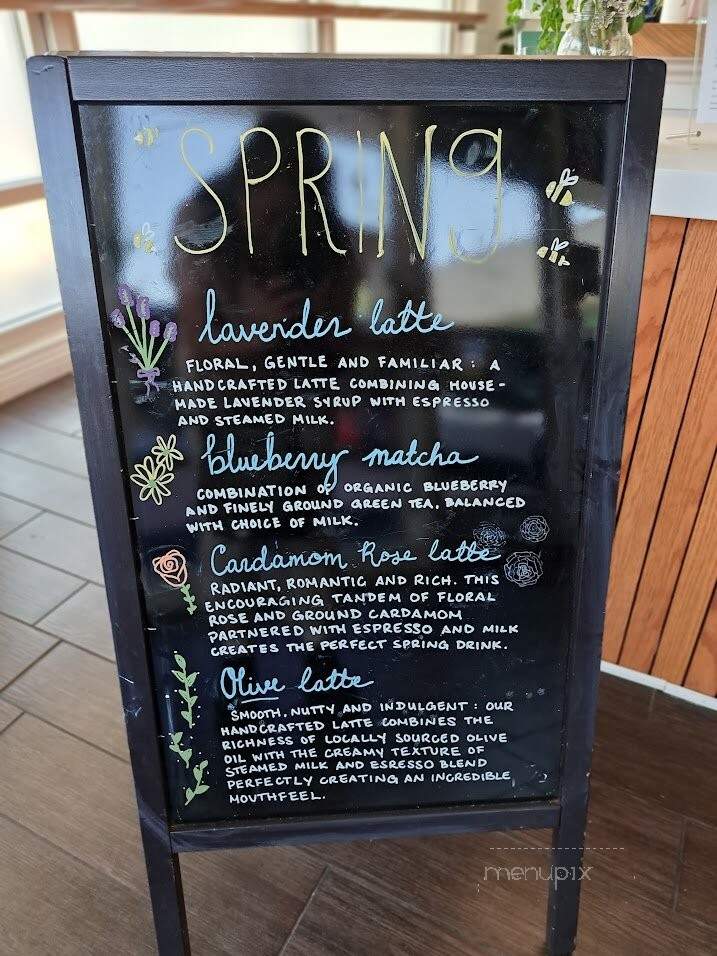 SPRING
lavender latte
FLORAL, GENTLE AND FAMILIAR: A
HANDCRAFTED LATTE COMBINING HOUSE-
MADE LAVENDER SYRUP WITH ESPRESSO
AND STEAMED MILK.
blueberry matcha
COMBINATION OF ORGANIC BLUEBERRY
AND FINELY GROUND GREEN TEA, BALANCED
WITH CHOICE OF MILK.
Cardamom Rose latte
RADIANT, ROMANTIC AND RICH. THIS
ENCOURAGING TANDEM OF FLORAL
ROSE AND GROUND CARDAMOM
PARTNERED WITH ESPRESSO AND MILK
CREATES THE PERFECT SPRING DRINK.
Olive latte
SMOOTH, NUTTY AND INDULGENT: OUR
HANDCRAFTED LATTE COMBINES THE
RICHNESS OF LOCALLY SOURCED OLIVE
OIL WITH THE CREAMY TEXTURE OF
STEAMED MILK AND ESRESSO BLEND
PERFECTLY CREATING AN INCREDIBLE
MOUTHFEEL.
menupix